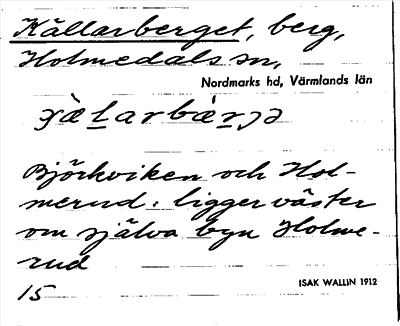 Källarberget, berg,
Holmedals sn,
Nordmarks hd, Värmlands län
Björkviken och Hol-
merud. ligger väster
om själva byn Holme-
rud
15
ISAK WALLIN 1912